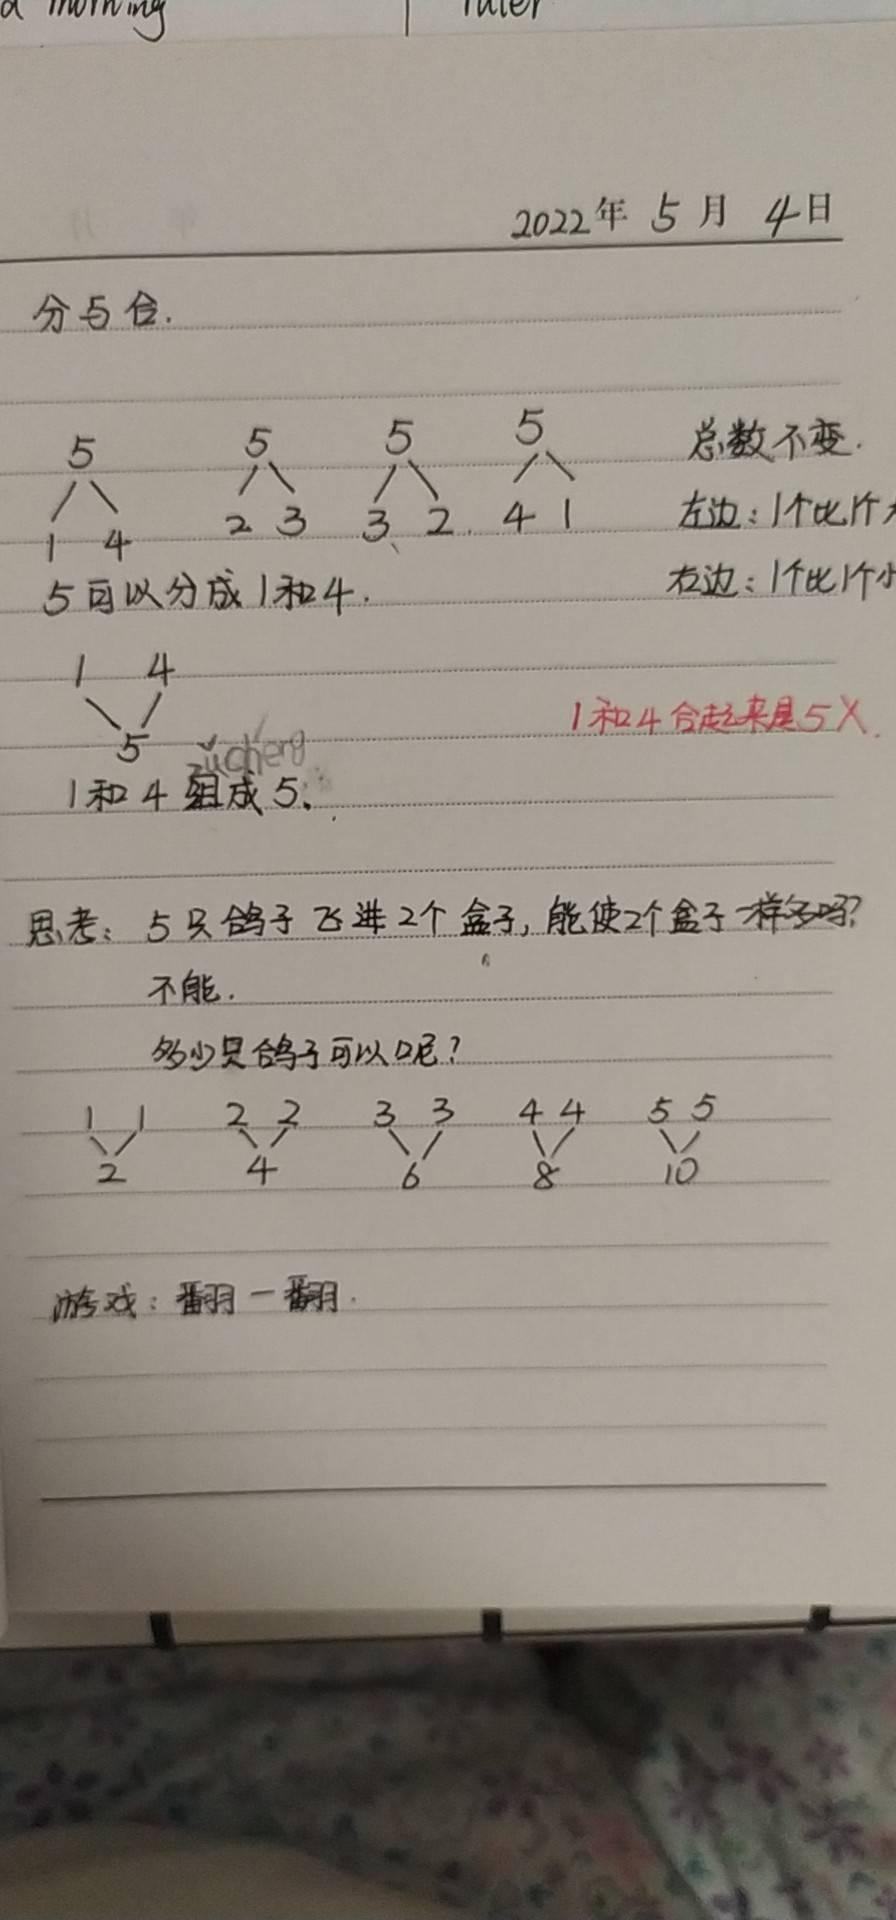 d morning ruler
2022年 5月 4日
分与合.
5 5 5 5 总数不变.
1 4 2 3 3 2 4 1 左边：1个比1个
5可以分成1和4. 右边：1个比1个小
1 4
5 1和4合起来是5 X.
zǔchéng
1和4组成5、
思考：5只鸽子飞进2个盒子，能使2个盒子一样多吗？
不能.
多少只鸽子可以呢？
1 1 2 2 3 3 4 4 5 5
2 4 6 8 10
游戏：翻一翻.